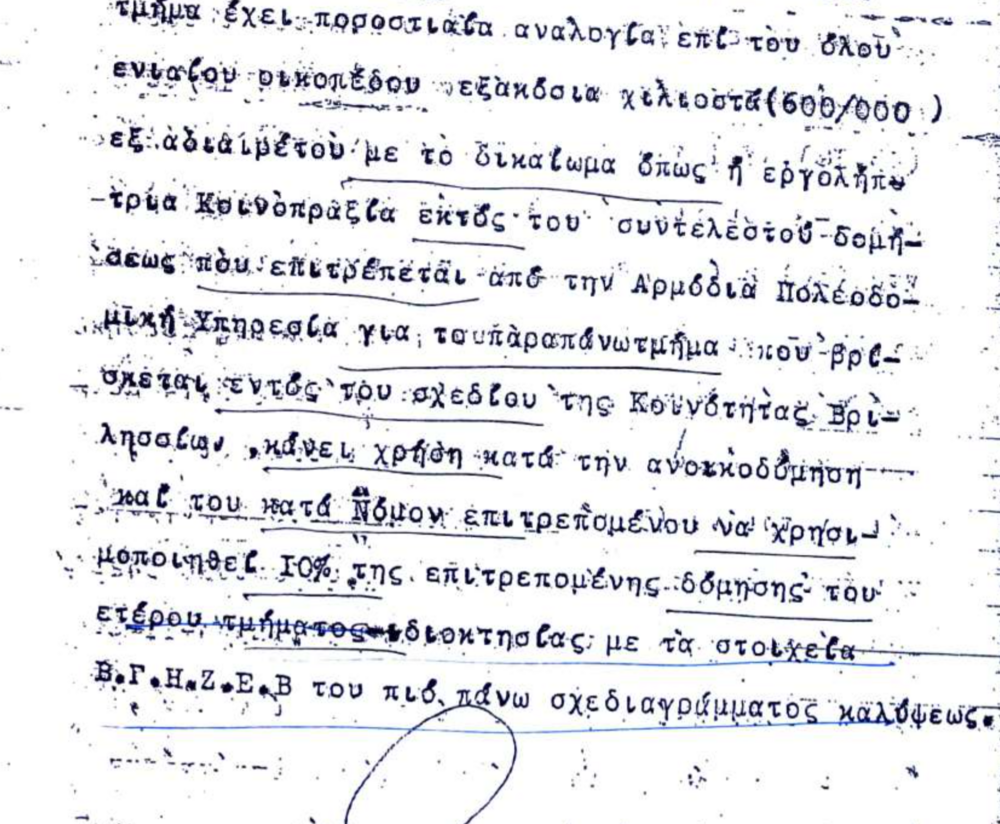 τμήμα έχει ποσοστιαία αναλογία επί του όλου
ενιαίου οικοπέδου εξακόσια χιλιοστά(600/000 )
εξ αδιαιρέτου με το δικαίωμα όπως ή εργολήπ
-τρια Κοινοπραξία εκτός του συντελεστού δομή-
σεως που επιτρέπεται από την Αρμόδια Πολεοδο-
μική Υπηρεσία για τουπαραπάνωτμήμα που βρί-
σκεται εντός του σχεδίου της Κοινότητας Βρι-
λησσίων ,κάνει χρήση κατά την ανοικοδόμηση
καί του κατά Νόμον επιτρεπομένου να χρησι-
μοποιηθεί 10% της επιτρεπομένης δόμησης του
ετέρου τμήματος ιδιοκτησίας με τα στοιχεία
Β.Γ.Η.Ζ.Ε.Β του πιό πάνω σχεδιαγράμματος καλύψεως.